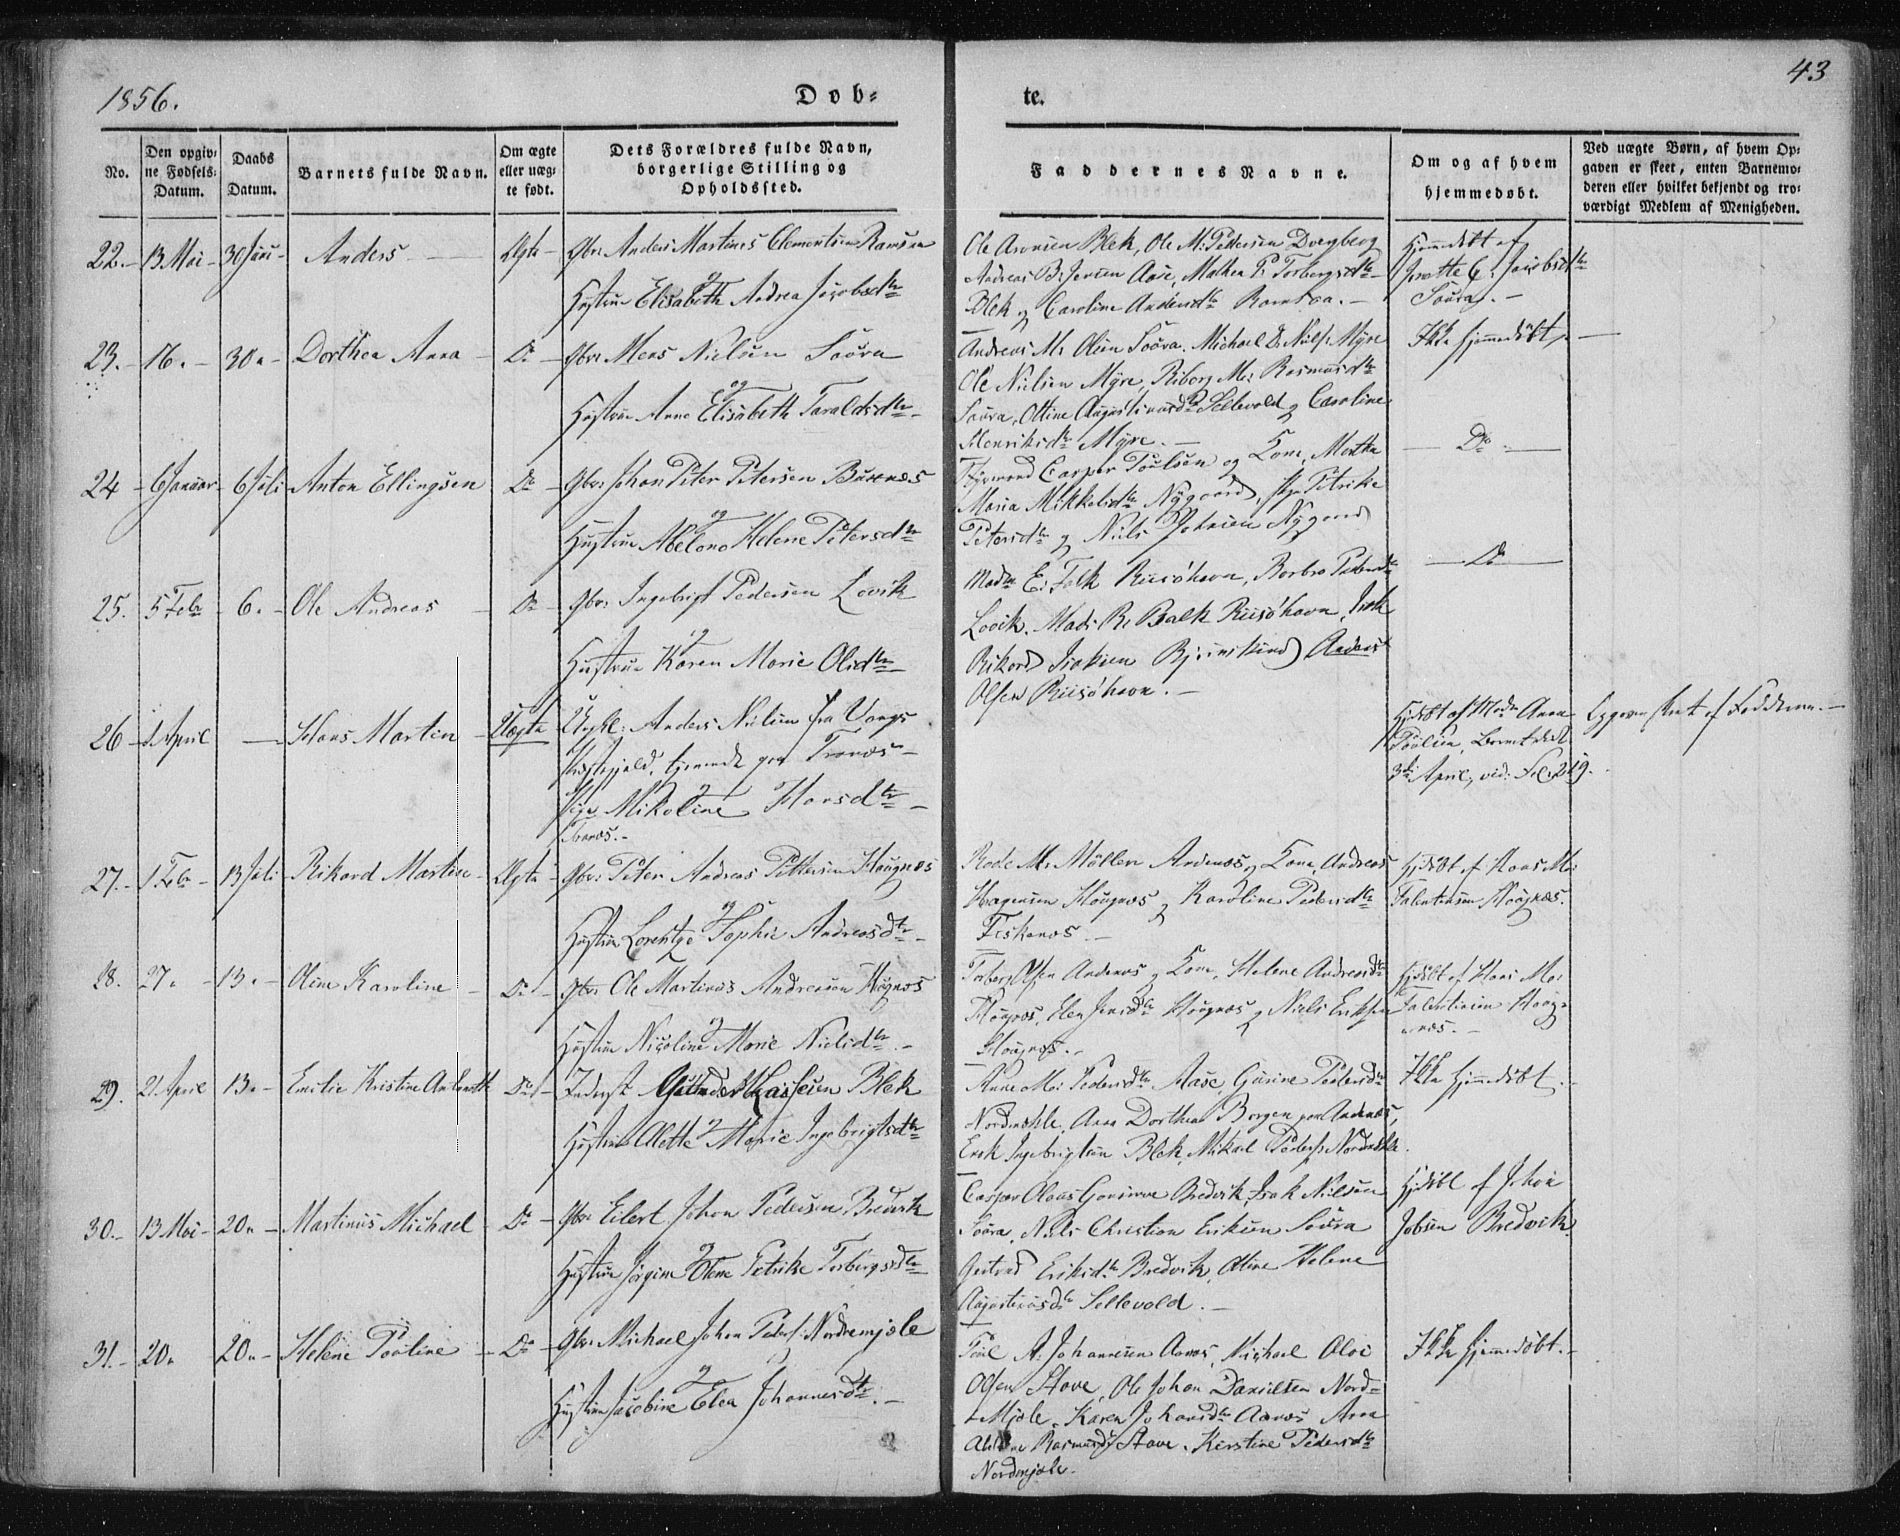 1856.
Døb-
te.
43
No.
Den opgiv-
ne Fødsels-
Datum.
Daabs
Datum.
Barnets fulde Navn.
Om ægte
eller uæg-
te født.
Dets Forældres fulde Navn,
borgerlige Stilling og
Opholdssted.
Faddernes Navne.
Om og af hvem
hjemmedøbt.
Ved uægte Børn, af hvem Op-
gaven er skeet, enten Barnemo-
deren eller hvilket bekjendt og tro-
værdigt Medlem af Menigheden.
22. 13 Mai 30 Juni Anders Ægte Gbr: Anders Martines Clementsen Ramsaa
og
Hustrue Elisabeth Andrea Jacobsdtr
Ole Aronsen Blek, Ole M: Pettersen Dvergberg
Andreas B: Jensen Aase, Mathea P: Torbergsdtr
Blek og Caroline Andersdtr Ramsaa.
Hjemmedøbt af
Grethe C: Jacobsdtr
Soura.
23. 16. 30 Dorthea Anna Do Gbr: Mons Nielsen Soura
og
Hustrue Anne Elisabeth Taraldsdtr
Andreas M: Olsen Soura. Michael D: Niels: Myre
Ole Nielsen Myre, Riborg M: Rasmusdtr
Soura, Ottine Augustinusdtr Sellevold og Caroline
Henriksdtr Myre.
Ikke hjemmedøbt,
24 6 Januar 6 Juli Anton Ellingsen Do Gbr: Johan Peter Petersen Buknes
og
Hustrue Abelone Helene Petersdtr
Casper Poulsen og Kone, Martha
Maria Mikkelsdtr Nygaard, Petrike
Petersdtr og Niels Johnsen Nygaard
Do
25. 5 Febr 6. Ole Andreas Do Gbr: Ingebrigt Pedersen Lovik
og
Hustrue Karen Marie Olsdtr
Madm E: Falk Riisøhavn, Barbro Pedersdtr
Lovik. Mads R: Balk Riisøhavn, Isak
Rikard Isaksen Bjørnskind Anders
Olsen Riisøhavn.
Do
26 1 April Hans Martin Uægte Ungkl: Anders Nielsen fra Vaags
Præstegjæld, tjenende paa Tranæs
og
Pige Mikoline Hansdtr
Tranæs.
Hjdøbt af Mads Anna
Poulsen, Barnet død
3die April, vid: Fol: 219.
Opgaven skeet af Fadderne.
27. 1 Febr 13 Juli Rikard Martin Ægte Gbr: Peter Andreas Pettersen Haugnæs
og
Hustrue Lorentze Sophie Andreasdtr
M: Möller Andenæs og Kone, Andreas
Hagensen Haugnæs og Karoline Pedersdtr
Fiskenæs.
Hjdøbt af Hans M:
Falentinsen Haugnæs.
28. 27. 13. Oline Karoline Do Gbr: Ole Martinus Andreasen Haugnæs
og
Hustrue Nicoline Marie Nielsdtr
Torberg Olsen Andenæs og Kone, Helene Andreasdtr
Haugnæs, Elen Jensdtr Haugnæs og Niels Eriksen
Haugnæs.
Hjdøbt af Hans M:
Falentinsen Haug-
næs.
29. 21 April 13. Emilie Kristine Do Inderst Blek
og
Hustrue Alette Marie Ingebrigtsdtr
Anne M: Pedersdtr Aase, Gurine Pedersdtr
Nordmjele, Ana Dorthea Borgen paa Andenæs,
Erik Ingebrigtsen Blek, Mikael Peders: Nordmjele.
Ikke hjemmedøbt.
30. 13 Mai 20. Martinus Michael Do Gbr: Eilert Johan Pedersen Bredvik
og
Hustrue Jørgine Olene Petrike Torbergsdtr
Casper Olaus Bredvik, Isak Nielsen
Soura, Niels Christian Eriksen Soura
Gertrud Eriksdtr Bredvik, Oline Helene
Augustinusdtr Sellevold.
Hjdøbt af Johan
Jobsen Bredvik.
31. 20. 20. Helene Pouline Do Gbr: Michael Johan Peders: Nordremjele
og
Hustrue Jacobine Elen Johannesdtr.
Poul A: Johannesen Aanæs, Michael Oloi
Olsen Stave, Ole Johan Danielsen Nord-
Mjele, Karen Johansdtr Aanæs Ana
Rasmusdtr Stave, Kirstine Pedersdtr
Nordmjele.
Ikke hjemmedøbt.